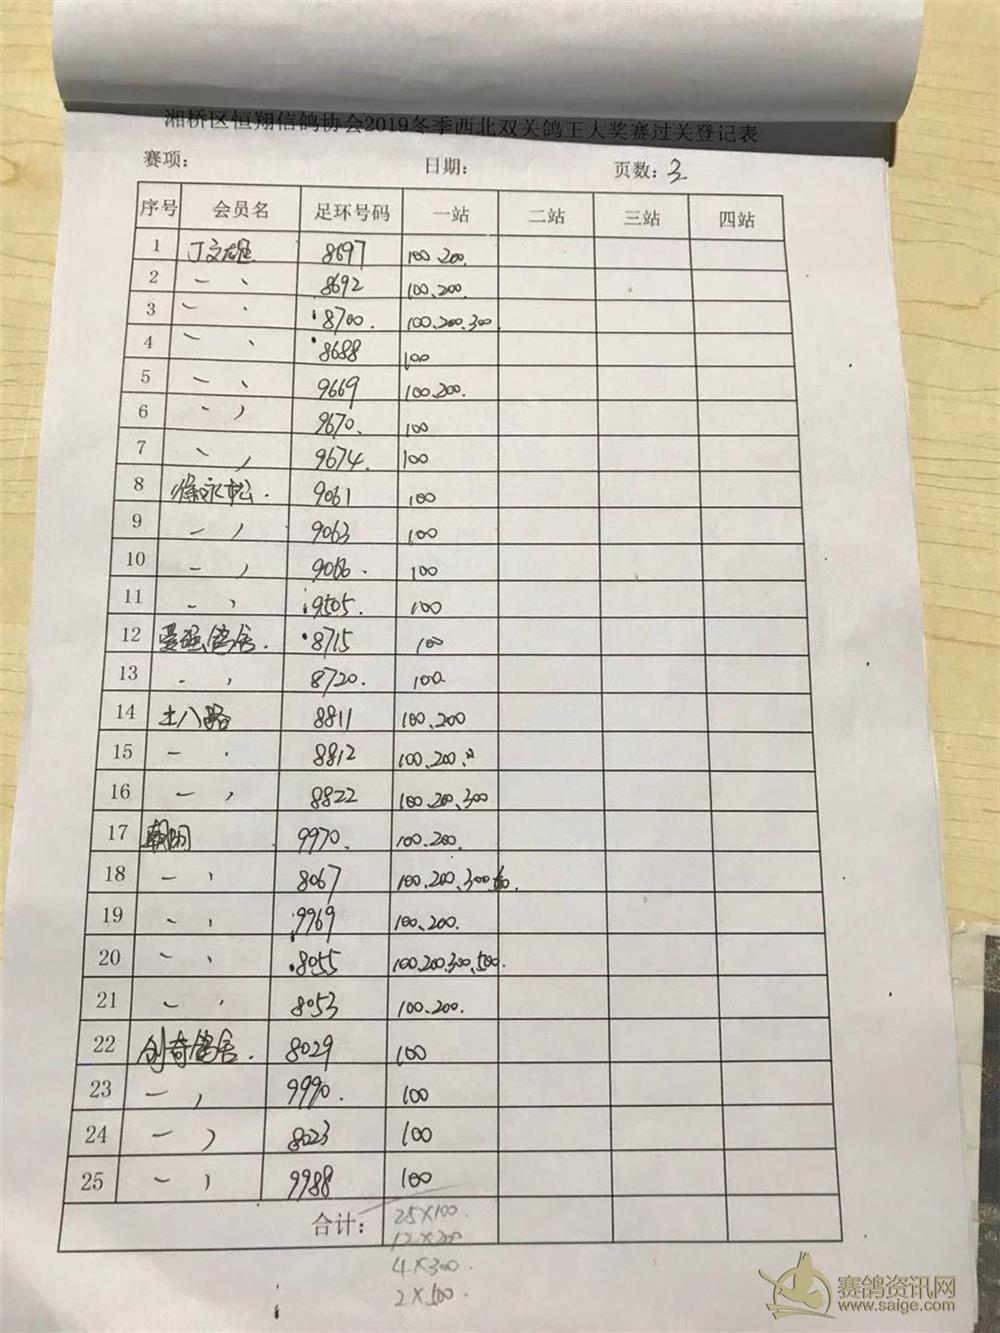 湘桥区恒翔信鸽协会2019冬季西北双关鸽王大奖赛过关登记表
赛项: 日期: 页数: 3
序号 会员名 足环号码 一站 二站 三站 四站
1 丁文雄 8697 100.200.
2 一 、 8692 100、200.
3 一 、 8700. 100、200、300
4 一 、 8688 100
5 一 、 9669 100、200.
6 一 、 9670. 100
7 一 、 9674. 100
8 徐永松. 9061 100
9 一 、 9063 100
10 一 、 100
11 一 、 9505. 100
12 爱强鸽舍. 8715 100
13 一 、 8720. 100.
14 土八路 8811 100、200
15 一 、 8812 100、200、
16 一 、 8822 100、200、300
17 朝阳 9970. 100、200.
18 一 、 8067 100、200、300
19 一 、 9969 100、200.
20 一 、 8055 100.200.300、500.
21 一 、 8053 100、200.
22 创奇鸽舍. 8029 100
23 一 、 9990. 100
24 一 、 8023 100
25 一 、 9988 100
合计: 25×100.
12×200
4×300.
2×500.
赛鸽资讯网
www.saige.com